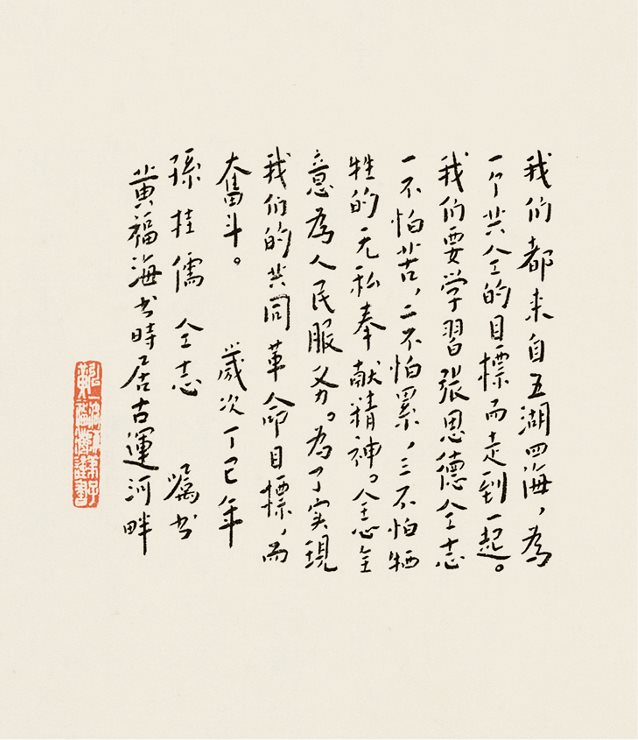 我们都来自五湖四海，為
一个共仝的目標而走到一起。
我们要学習張思德仝志
一不怕苦，二不怕累，三不怕牺
牲的无私奉献精神。全心全
意為人民服务。為了实現
我们的共同革命目標，而
奮斗。 歲次丁巳年
孫桂儒仝志 嘱书
黄福海书時居古運河畔